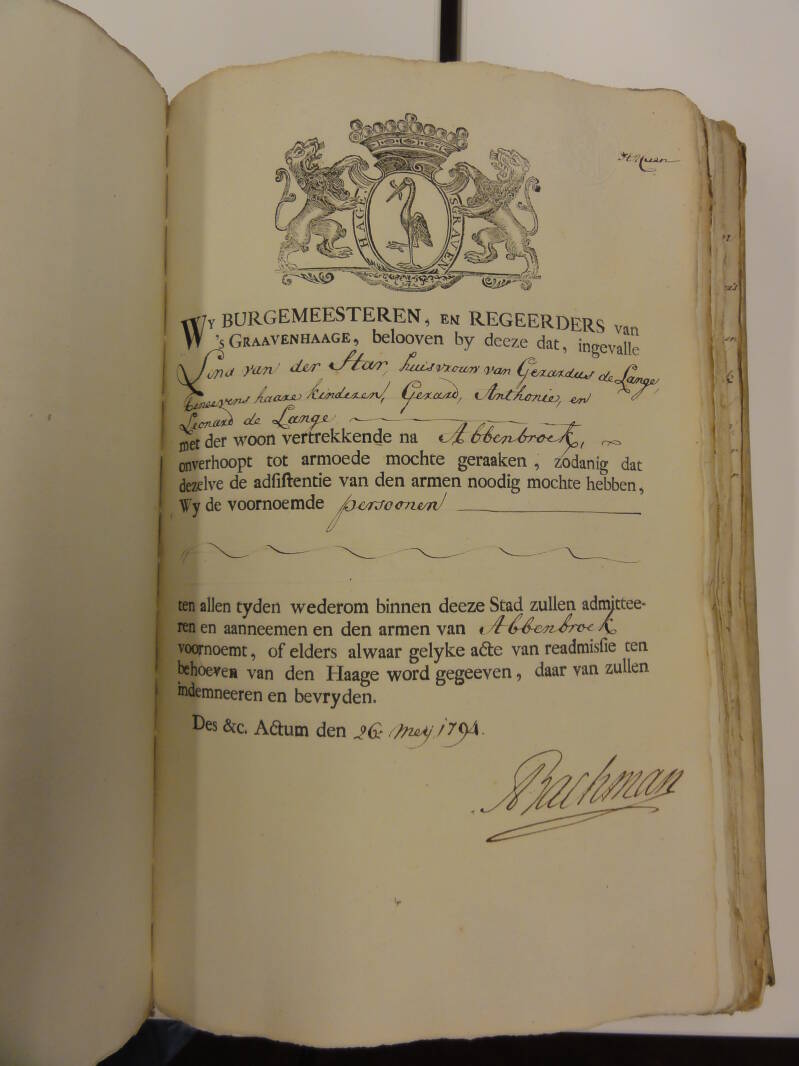 HAGE. SGRAVEN
WY BURGEMEESTEREN, EN REGEERDERS van
's GRAAVENHAAGE, belooven by deeze dat, ingevalle
van der Star, huisvrouw van Gerardus de Lange,
beneevens haare kinderen, Gerard, Anthonie, en
Leonard de Lange
met der woon vertrekkende na Abbenbroek,
onverhoopt tot armoede mochte geraaken, zodanig dat
dezelve de adſiſtentie van den armen noodig mochte hebben,
Wy de voornoemde persoonen
ten allen tyden wederom binnen deeze Stad zullen admittee-
ren en aanneemen en den armen van Abbenbroek
voornoemt, of elders alwaar gelyke acte van readmisſie ten
behoeven van den Haage word gegeeven, daar van zullen
indemneeren en bevryden.
Des &c. Actum den 26 Mey 1794.
Bachman